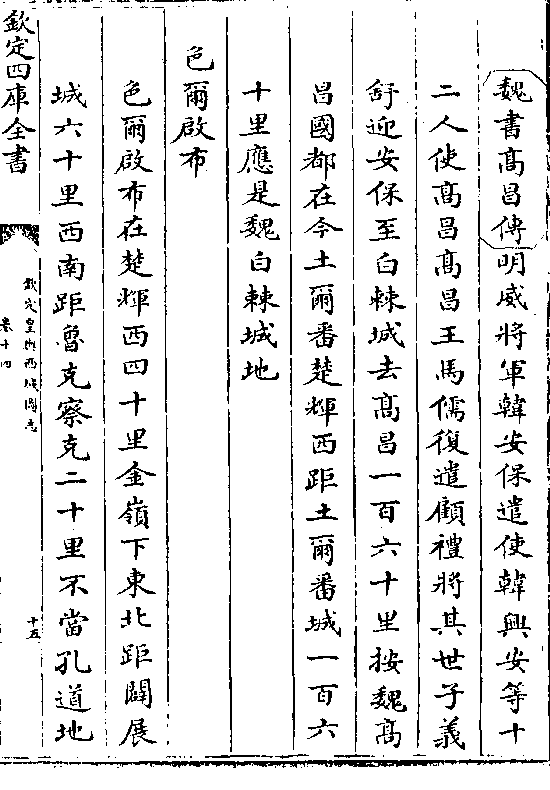 魏書髙昌傳明威將軍韓安保遣使韓興安等十
二人使髙昌髙昌王馬儒復遣顧禮將其世子義
舒迎安保至白棘城去髙昌一百六十里按魏髙
昌國都在今土爾番楚輝西距土爾番城一百六
十里應是魏白棘城地
色爾啟布
色爾啟布在楚輝西四十里金嶺下東北距闢展
城六十里西南距魯克察克二十里不當孔道地
欽定四庫全書
欽定皇輿西域圖志
卷十四
十五